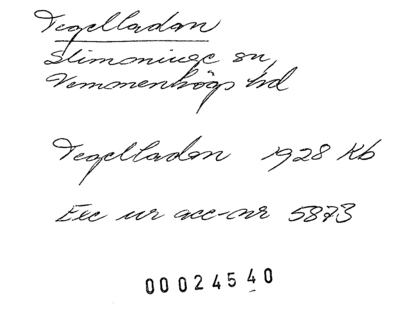 Tegelladan
Slimminge sn,
Vemmenhögs hd
Tegelladan 1928 Kb
Exc ur acc-nr 5873
00024540